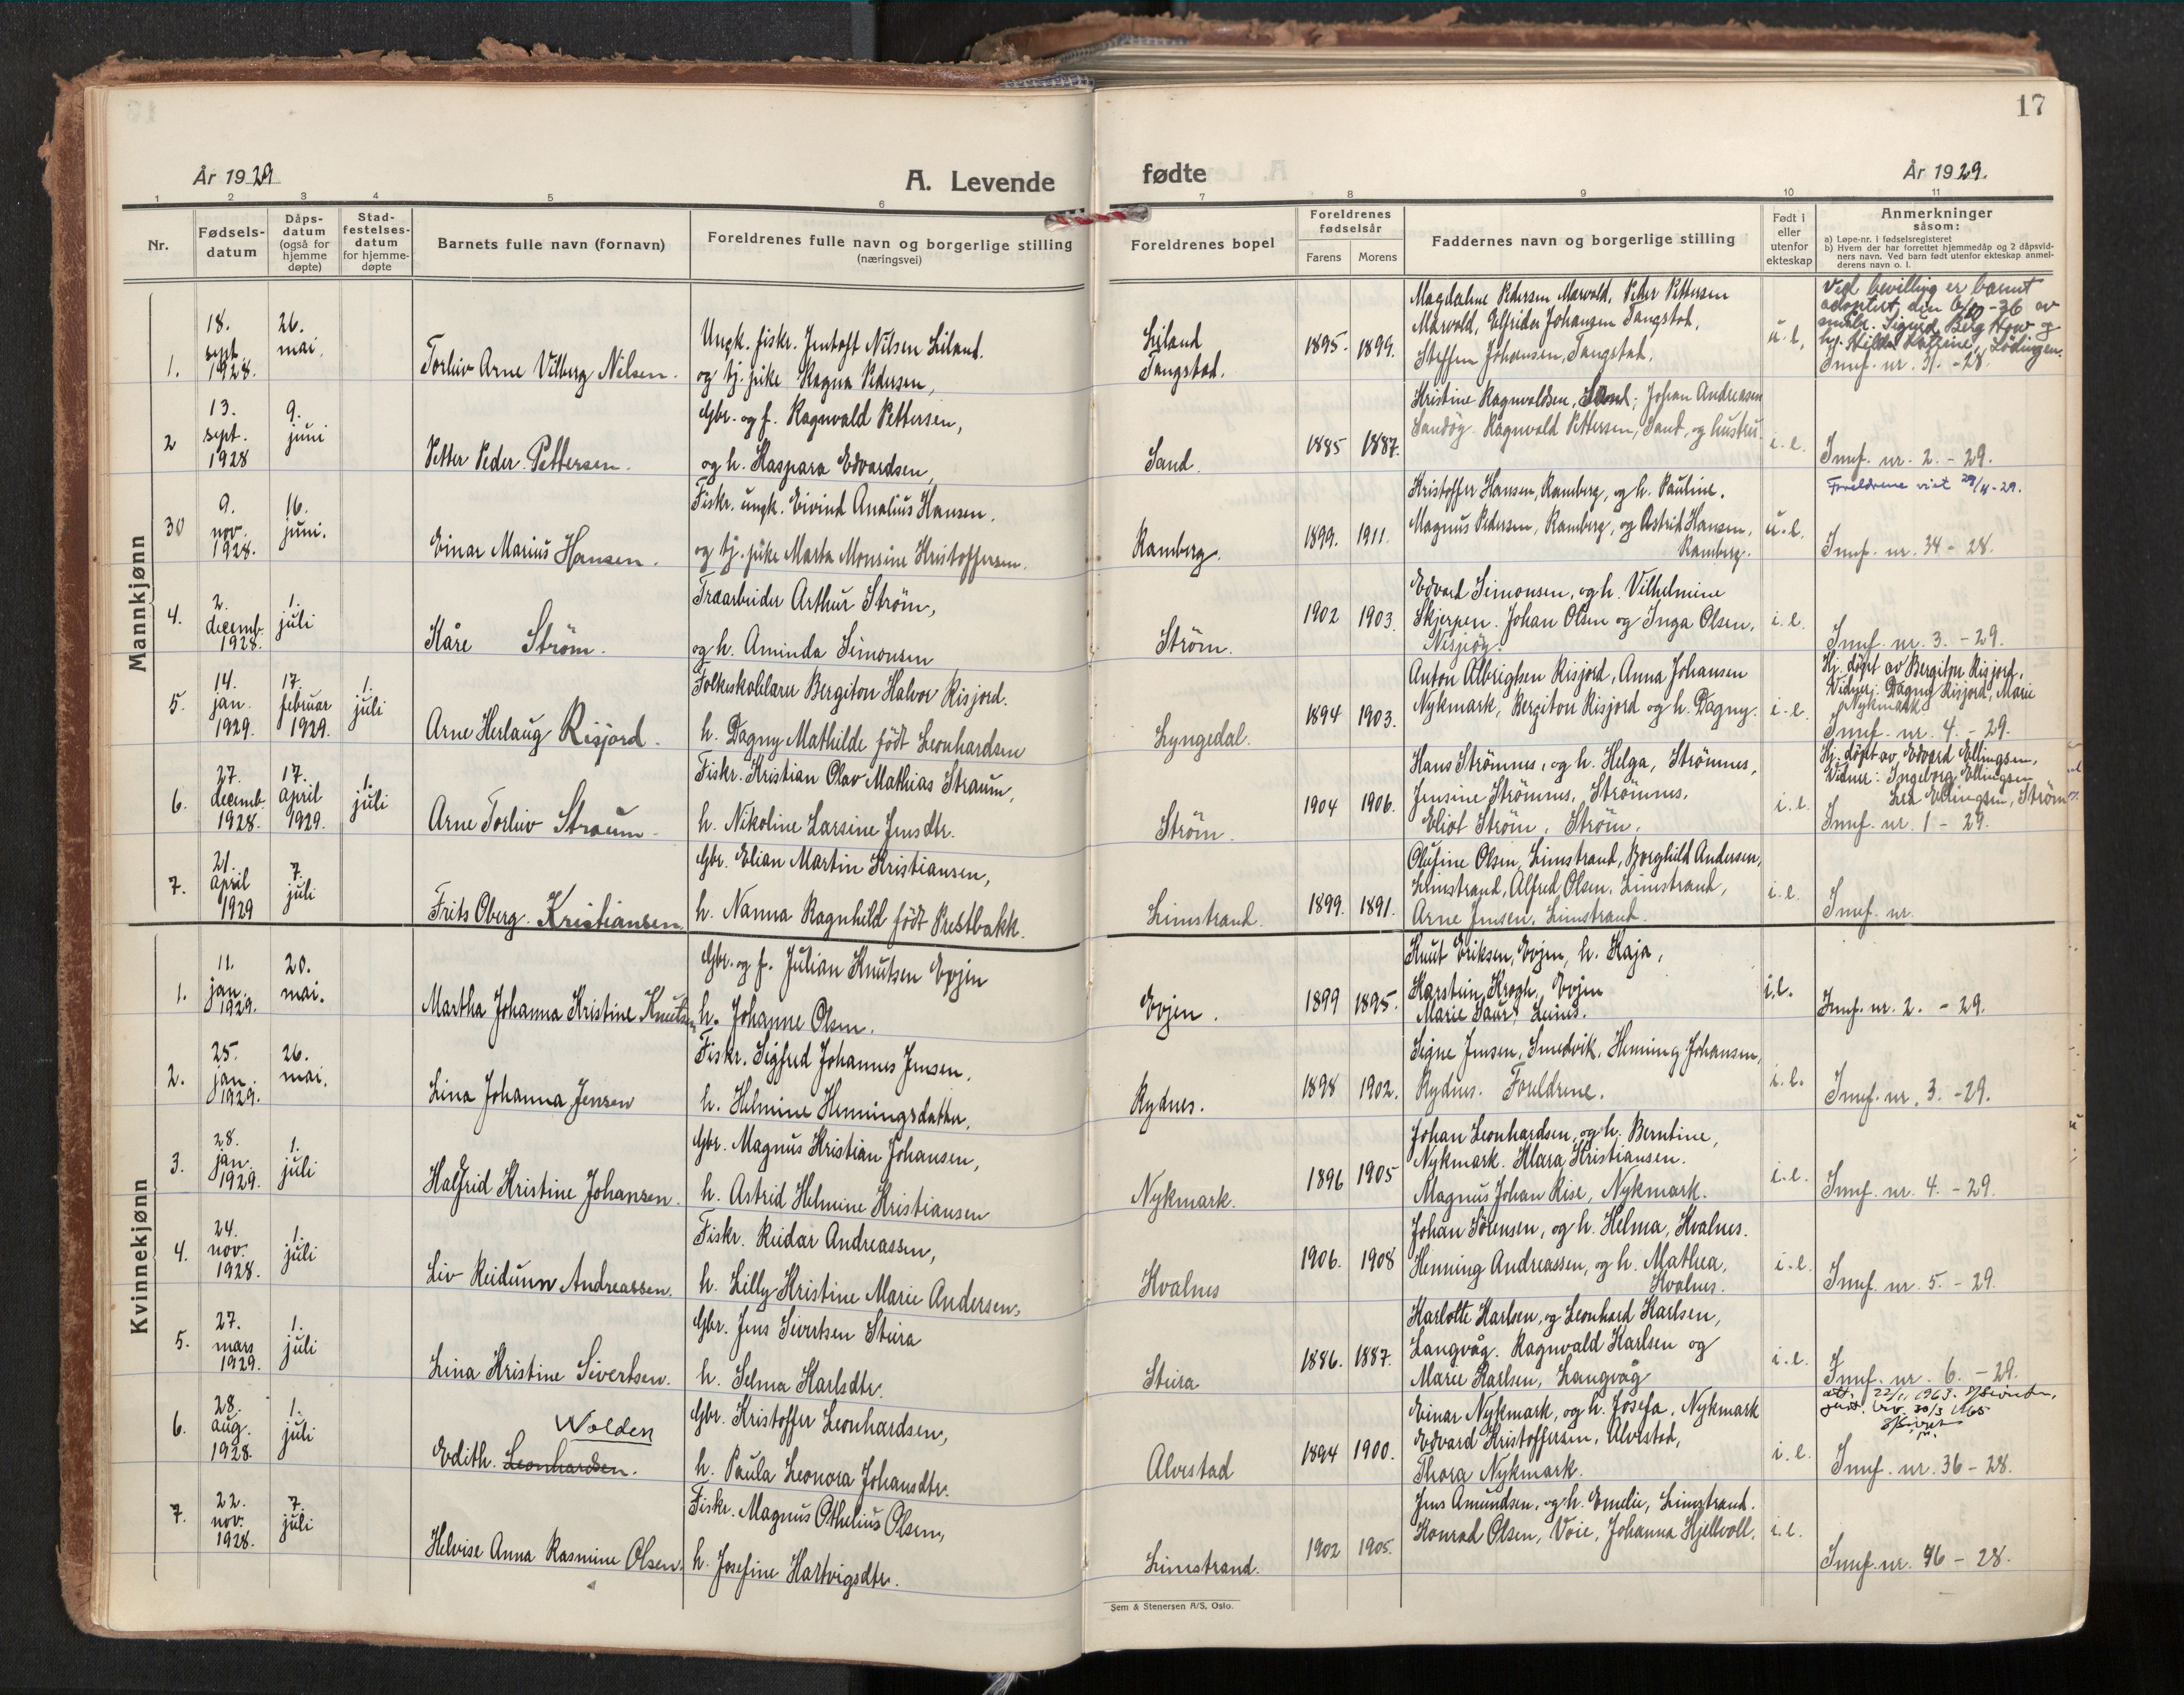 17
År 1929
A. Levende
fødte
År 1929.
1 2 3 4 5 6 7 8 9 10 11
Nr.
Fødsels-
datum
Dåps-
datum
(også for
hjemme
døpte)
Stad-
festelses-
datum
for hjemme-
døpte
Barnets fulle navn (fornavn)
Foreldrenes fulle navn og borgerlige stilling
(næringsvei)
Foreldrenes bopel
Foreldrenes
fødselsår
Farens Morens
Faddernes navn og borgerlige stilling
Født i
eller
utenfor
ekteskap
Anmerkninger
såsom:
a) Løpe-nr. i fødselsregisteret
b) Hvem der har forrettet hjemmedåp og 2 dåpsvid-
ners navn. Ved barn født utenfor ekteskap anmel-
derens navn o. l.
Mannkjønn
1.
18.
sept.
1928.
26.
mai.
Torleiv Arne Vilberg Nilsen.
Ungk. fiskr. Jentoft Nilsen Leiland.
og tj. pike Ragna Pedersen,
Leiland
Tangstad.
1895. 1899.
Magdaline Pedersen Marvold, Peder Pettersen
Marvold, Elfrida Johansen Tangstad,
Steffen Johansen, Tangstad.
u. e.
Ved bevilling er barnet
adoptert den 6/10 -36 av
småbr. Sigurd Berg How og
h. Hilda Katrine, Lödingen.
Innf. nr. 31. -28.
2
13.
sept.
1928
9.
juni
Petter Peder Pettersen.
Gbr. og f. Ragnvald Pettersen,
og h. Kaspara Edvardsen,
Sand.
1885 1887.
Kristine Ragnvaldsen, Sand; Johan Andreasen
Sandöy. Ragnvald Pettersen, Sand, og hustru.
i. e.
Innf. nr. 2. - 29.
30
9.
nov.
1928.
16.
juni.
Einar Marius Hansen.
Fiskr. ungk. Eivind Analius Hansen.
og tj. pike Marta Monsine Kristoffersen.
Ramberg.
1899. 1911.
Kristoffer Hansen, Ramberg, og h. Pauline.
Magnus Pedersen, Ramberg, og Astrid Hansen,
Ramberg.
u. e.
Foreldrene viet 29/4-29.
Innf. nr. 34 - 28.
4.
2.
decemb.
1928.
1.
juli
Kåre Ström.
Traarbeider Arthur Ström,
og h. Aminda Simonsen
Ström.
1902 1903.
Edvard Simonsen, og h. Vilhelmine
Skjerpen. Johan Olsen og Inga Olsen,
i. e.
Innf. nr. 3. - 29.
5.
14.
jan.
1929.
17.
februar
1929.
1.
juli
Arne Herlaug Risjord.
Folkeskolelærer Bergiton Halvor Risjord.
h. Dagny Mathilde født Leonhardsen
Lyngedal.
1894 1903.
Anton Albrigtsen Risjord, Anna Johansen
Nykmark, Bergiton Risjord og h. Dagny.
i. e.
Hj. døpt av Bergiton Risjord,
Vidner: Dagny Risjord, Marie
Nykmark.
Innf. nr. 4. - 29.
6.
27.
decemb.
1928.
17.
april
1929.
1.
juli
Arne Torleiv Straum.
Fiskr. Kristian Olav Mathias Straum,
h. Nikoline Larsine Jensdtr.
Ström.
1904 1906.
Hans Strömnes, og h. Helga, Strömnes,
Jensine Strömnes, Strömnes.
Eliot Ström, Ström.
i. e.
Hj. døpt av Edvard Ellingsen,
Vidner: Ingeborg Ellingsen
Lea Ellingsen, Ström
Innf. nr. 1 - 29.
7.
21.
april
1929
7.
juli
Frits Oberg Kristiansen
Gbr. Elian Martin Kristiansen,
h. Nanna Ragnhild født Prestbakk.
Limstrand.
1899. 1891.
Olufine Olsen, Limstrand, Borghild Andersen,
Limstrand, Alfred Olsen, Limstrand,
Arne Jensen, Limstrand.
i. e.
Innf. nr.
Kvinnekjønn
1.
11.
jan.
1929.
20.
mai.
Martha Johanna Kristine Knutsen
Gbr. og f. Julian Knutsen Evjen
h. Johanne Olsen.
Evjen.
1899 1895.
Knut Eriksen, Evjen, h. Kaja,
Karstein Krogh, Evjen
Marie Saur, Leines.
i. e.
Innf. nr. 2. - 29.
2.
25.
jan.
1929.
26.
mai.
Lina Johanna Jensen
Fiskr. Sigfred Johannes Jensen,
h. Helmine Henningsdatter,
Rydnes.
1898 1902.
Signe Jensen, Smedvik, Henning Johansen,
Rydnes. Foreldrene.
i. e.
Innf. nr. 3. -29.
3.
28.
jan.
1929.
1.
juli
Halfrid Kristine Johansen.
Gbr. Magnus Kristian Johansen,
h. Astrid Helmine Kristiansen
Nykmark.
1896 1905
Johan Leonhardsen, og h. Berntine,
Nykmark. Klara Kristiansen.
Magnus Johan Rise, Nykmark.
i. e.
Innf. nr. 4. - 29.
4.
24.
nov.
1928.
1.
juli
Liv Reidunn Andreassen.
Fiskr. Reidar Andreassen,
h. Lilly Kristine Marie Andersen.
Kvalnes
1906. 1908
Johan Sörensen, og h. Helma, Kvalnes.
Henning Andreassen, og h. Mathea,
Kvalnes.
i. e.
Innf. nr. 5. - 29.
5.
27.
mars
1929.
1.
juli
Lina Kristine Sivertsen.
Gbr. Jens Sivertsen Steira
h. Selma Karlsdtr.
Steira
1886. 1887.
Karlotte Karlsen, og Leonhard Karlsen,
Langvåg. Ragnvald Karlsen og
Marie Karlsen, Langvåg
i. e.
Innf. nr. 6. - 29.
6.
28.
aug.
1928.
1.
juli
Wolden
Edith. Leonhardsen.
Gbr. Kristoffer Leonhardsen,
h. Paula Leonora Johansdtr.
Alvestad
1894 1900.
Einar Nykmark, og h. Josefa, Nykmark
Edvard Kristoffersen, Alvestad,
Thora Nykmark.
i. e.
Innf. nr. 36 - 28.
7.
22.
nov.
1928.
7.
juli
Helvise Anna Rasmine Olsen.
Fiskr. Magnus Othelius Olsen,
h. Josefine Hartvigsdtr.
Limstrand.
1902 1905.
Jens Amundsen, og h. Emelie, Limstrand.
Konrad Olsen, Voie, Johanna Hjellvoll.
i. e.
Innf. nr. 46 - 28.
Sem & Stenersen A/S, Oslo.